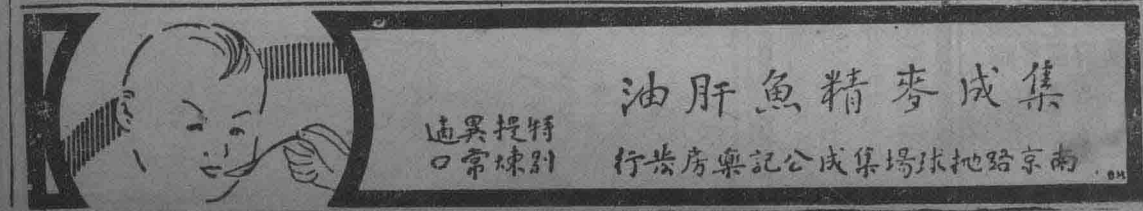 集成麥精魚肝油
南京路拋球場集成公記藥房發行
特別
提煉
異常
適口